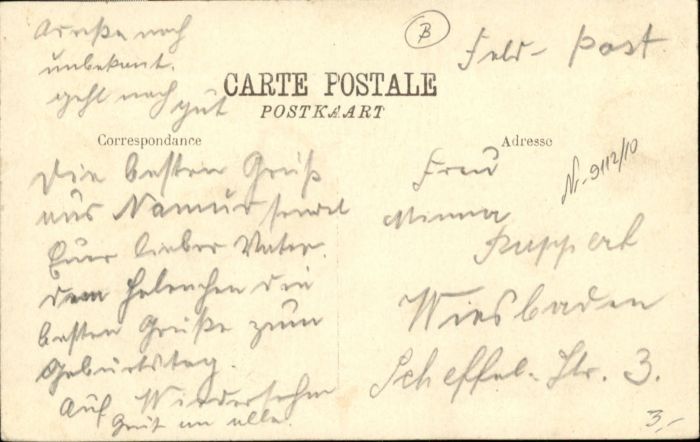 Adresse noch
unbekant.
geht noch gut
B
Feld-Post.
CARTE POSTALE
POSTKAART
Correspondance
Adresse
Nr. 9112/10
Die besten Grüß
aus Namur sendet
Euer lieber Vater.
dem Helenchen die
besten Grüße zum
Geburtstag.
Auf Wiedersehn
Gruß an alle.
Frau
Minna
Ruppert
Wiesbaden
Scheffel-Str. 3.
3,-